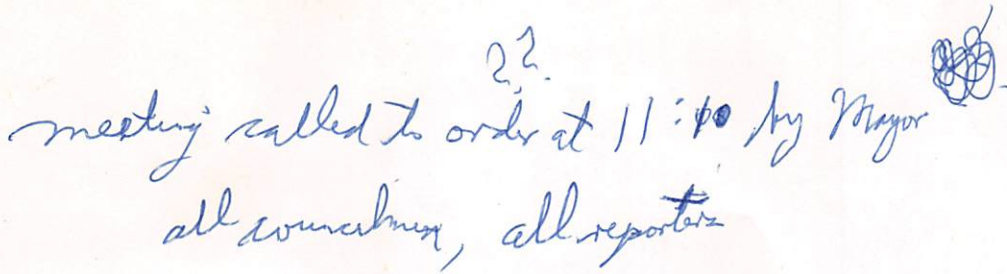 ??
meeting called to order at 11:10 by Mayor
all councilmen, all reporters